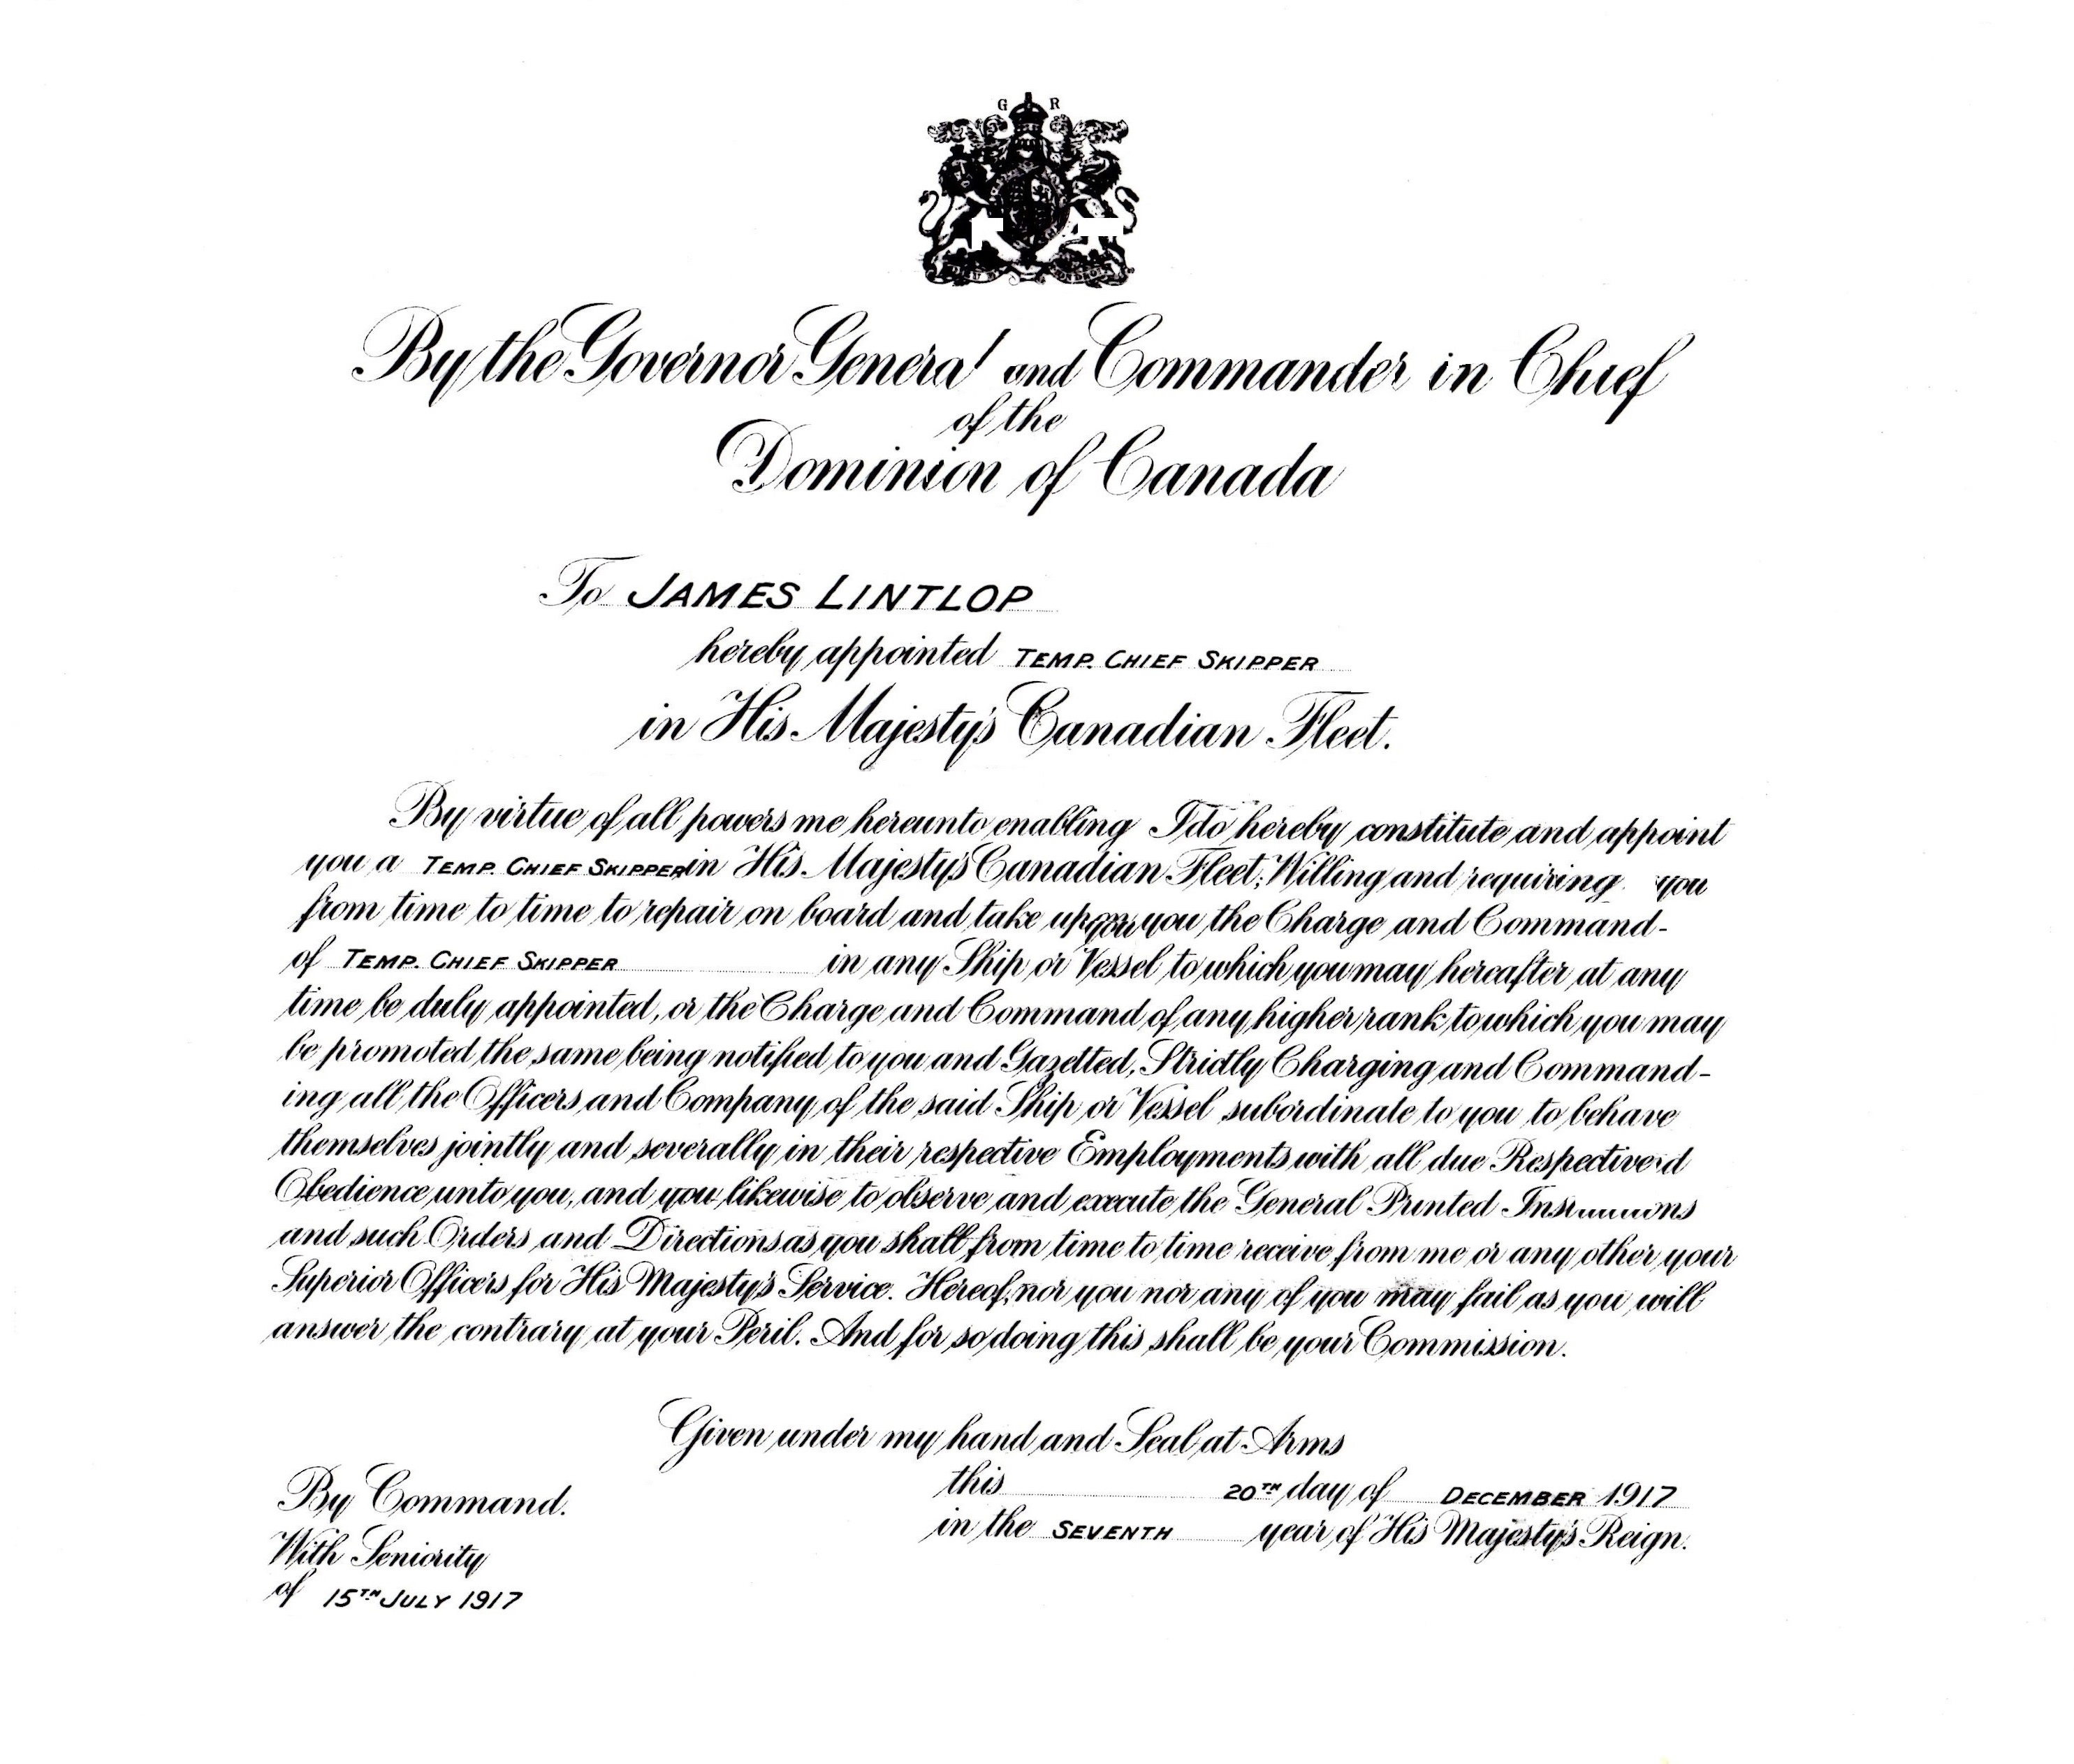 G R
By the Governor General and Commander in Chief
of the
Dominion of Canada
To JAMES LINTLOP
hereby appointed TEMP. CHIEF SKIPPER
in His Majesty's Canadian Fleet.
By virtue of all powers me hereunto enabling I do hereby constitute and appoint
you a TEMP. CHIEF SKIPPER in His Majesty's Canadian Fleet; Willing and requiring you
from time to time to repair on board and take upon you the Charge and Command-
of TEMP. CHIEF SKIPPER in any Ship or Vessel to which you may hereafter at any
time be duly appointed, or the Charge and Command of any higher rank to which you may
be promoted the same being notified to you and Gazetted, Strictly Charging and Command-
ing all the Officers and Company of the said Ship or Vessel subordinate to you to behave
themselves jointly and severally in their respective Employments with all due
Obedience unto you, and you likewise to observe and execute the General Printed
and such Orders and Directions as you shall from time to time receive from me or any other your
Superior Officers for His Majesty's Service. Hereof, nor you nor any of you may fail as you will
answer the contrary at your Peril. And for so doing this shall be your Commission.
Given under my hand and Seal at Arms
this 20TH day of DECEMBER 1917
in the SEVENTH year of His Majesty's Reign.
By Command.
With Seniority
of 15TH JULY 1917